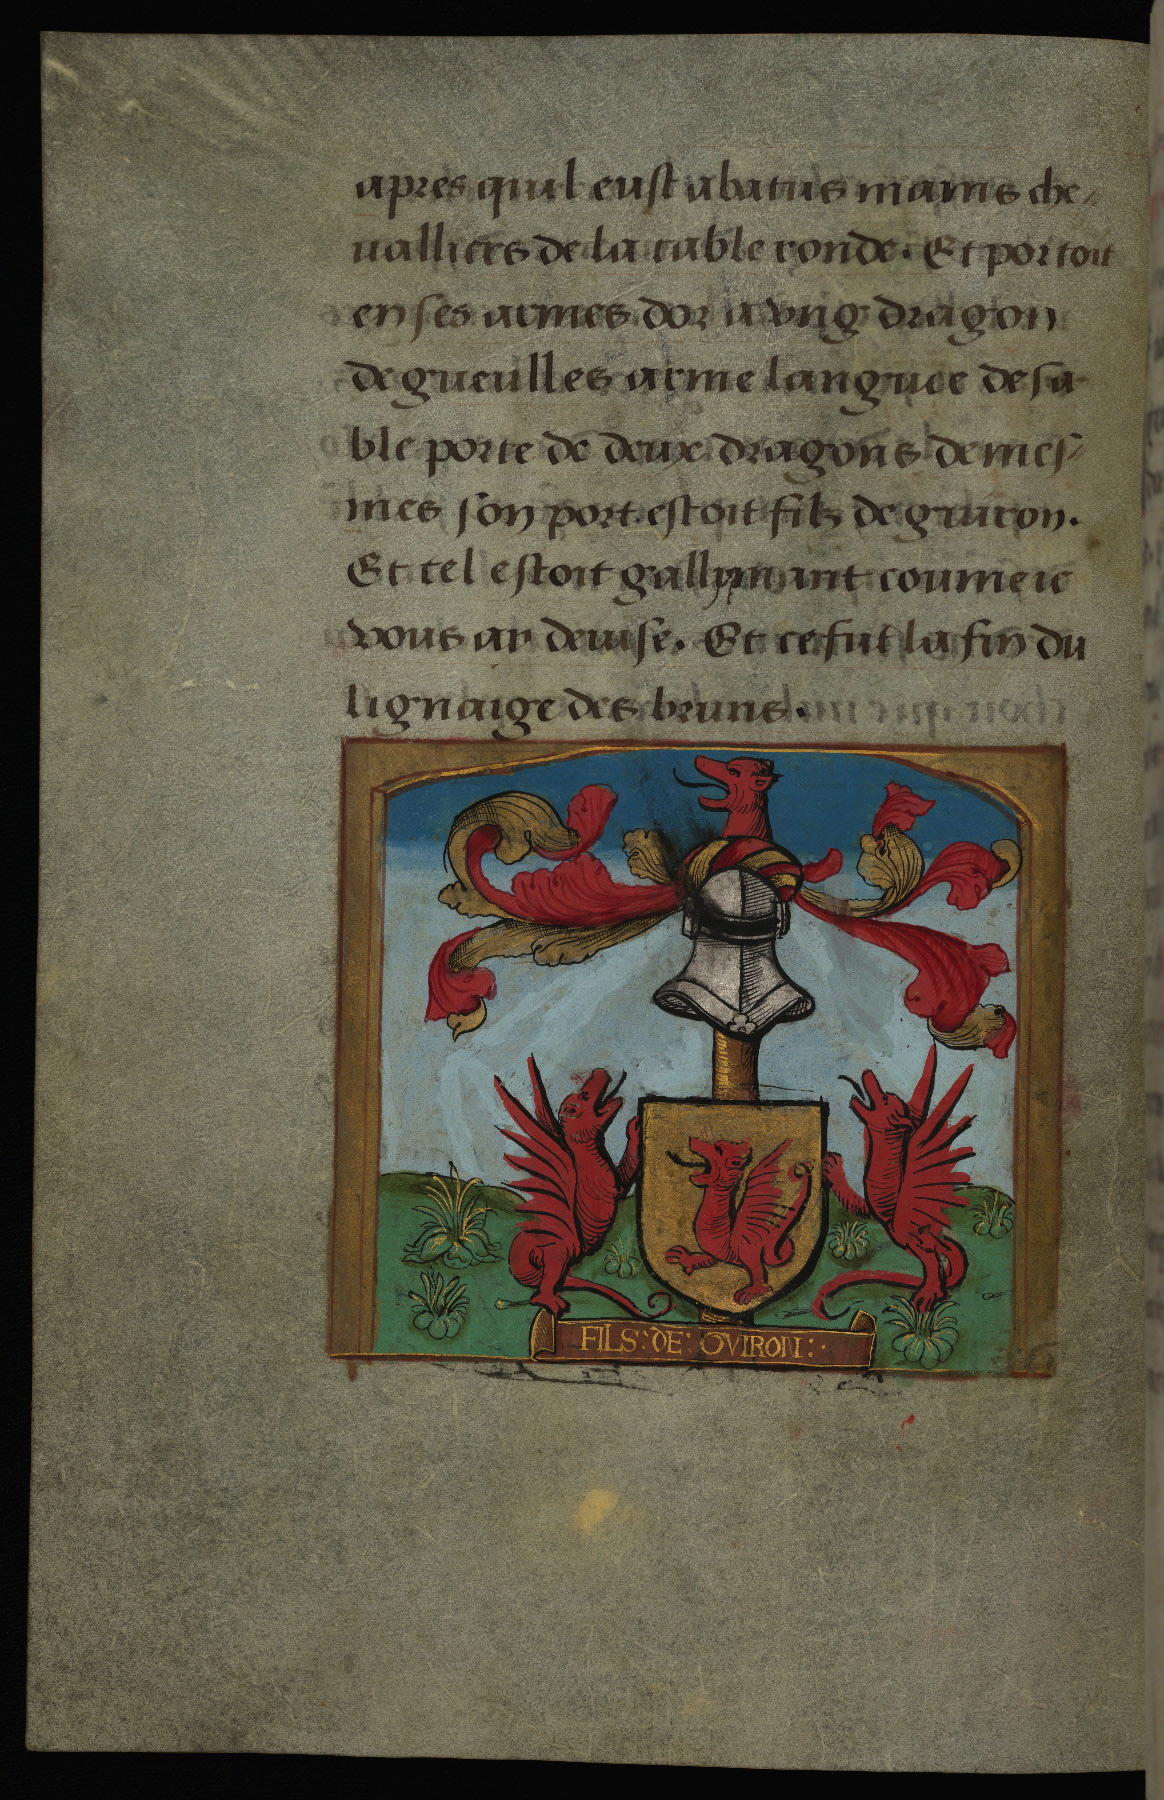 apres quil eust abatus mains che/
ualliers de la table ronde. Et portoit
en ses armes dor a ung dragon
de gueulles arme languee de sa
ble porte de deux dragons de mes/
mes son port. estoit filz de guiron.
Et tel estoit gallymant comme ie
vous ay deuise. Et ce fut la fin du
lignaige des bruns.
FILS : DE : GVIRON :